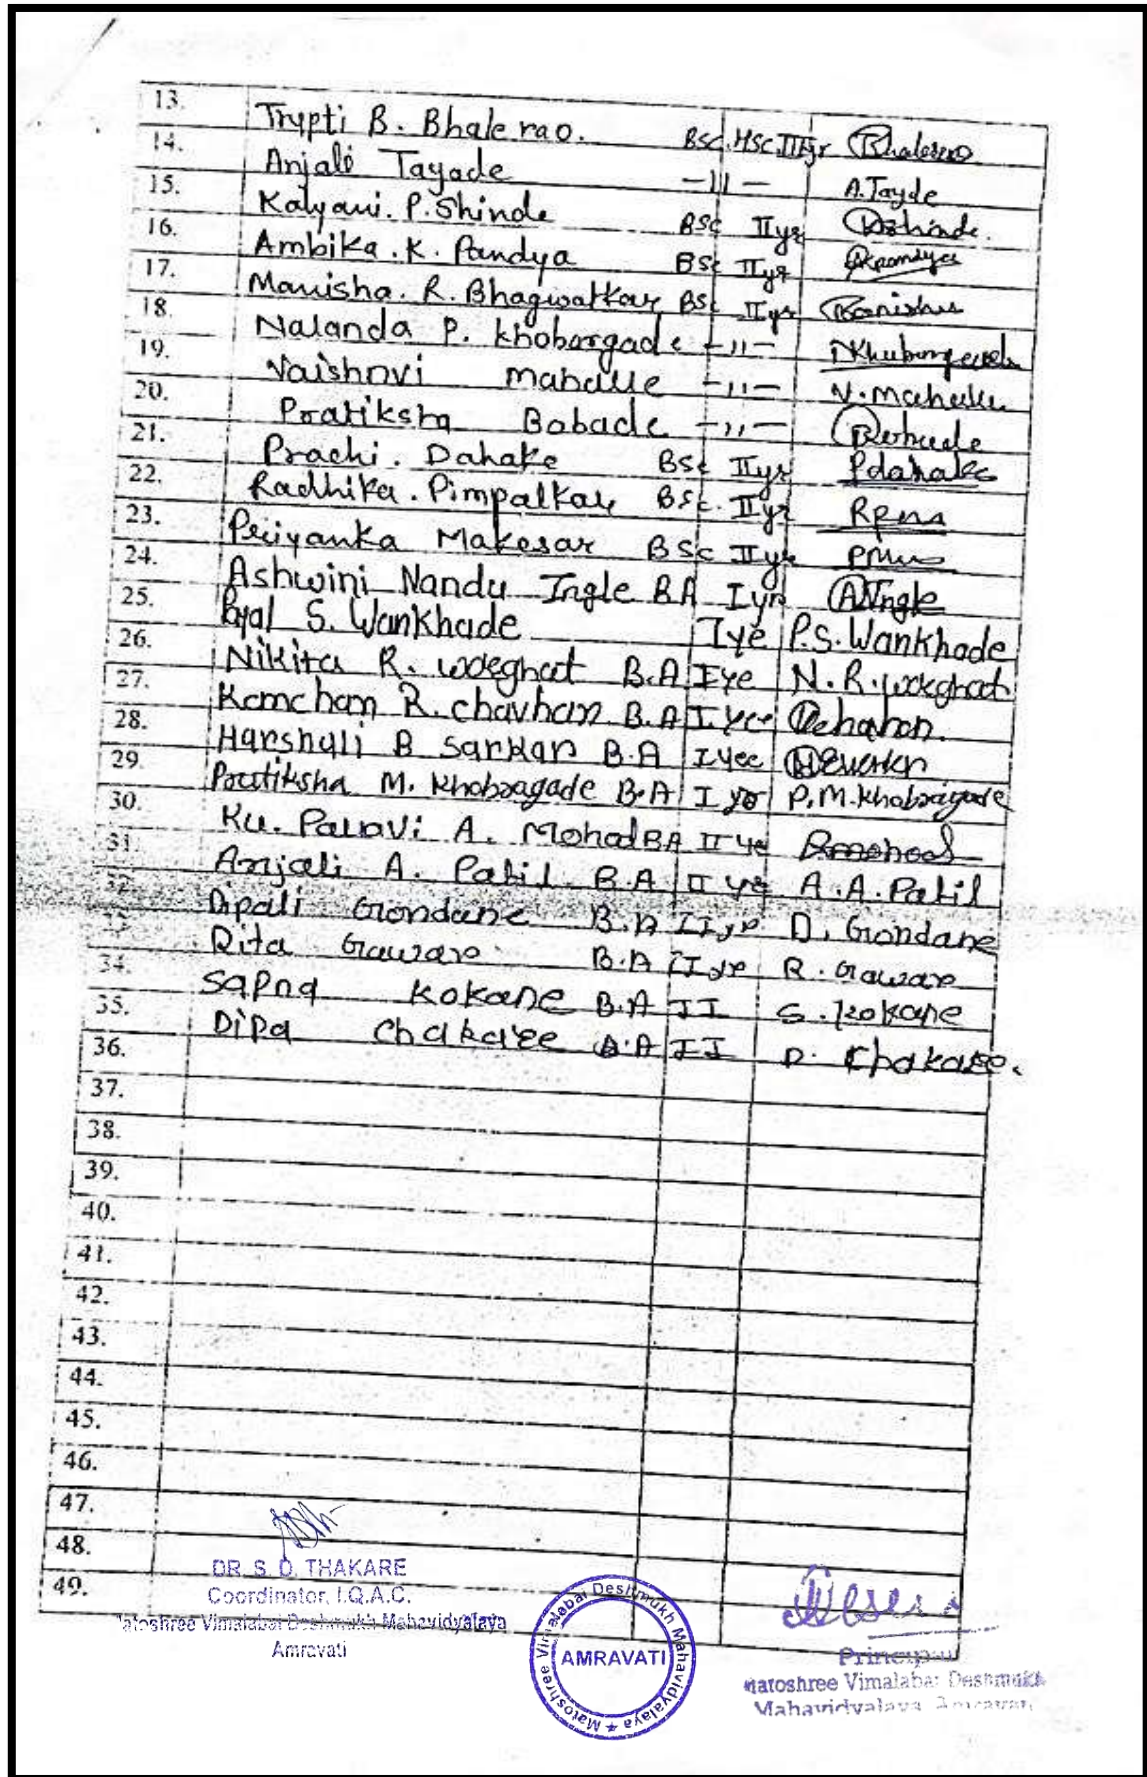 13. Trupti B. Bhalerao. BSc. HSc. III yr Bhalerao
14. Anjali Tayade -11- A. Tayde
15. Kalyani. P. Shinde BSc II yr Shinde.
16. Ambika. K. Pandya BSc II yr AKpandya
17. Manisha. R. Bhagwatkar BSc II yr
18. Nalanda P. Khobargade -11-
19. Vaishnvi Mahalle -11- V. Mahalle
20. Pratiksha Babade -11-
21. Prachi. Dahake BSc II yr Pdahake
22. Radhika. Pimpalkar BSc. II yr
23. Priyanka Makesar BSc II yr
24. Ashwini Nandu Ingle BA I yr A N Ingle
25. Payal S. Wankhade I ye P.S. Wankhade
26. Nikita R. B.A I ye N. R.
27. Kamcham R. chavhan B.A I
28. Harshali B Sarkar B.A I yee
29. Pratiksha M. Khobragade B.A I yr P.M. Khobragade
30. Ku. Pallavi A. Mohod BA II ye
31. Anjali A. Patil B.A II ye A.A. Patil
32. Dipali Gondane B.A II yr D. Gondane
33. Rita Gaware B.A II yr R. Gaware
34. Sapna Kokane B.A II S. Kokane
35. Dipa Chakare B.A II D. Chakare.
36.
37.
38.
39.
40.
41.
42.
43.
44.
45.
46.
47.
48.
49.
DR. S. D. THAKARE
Coordinator, I.Q.A.C.
Matoshree Vimalabai Deshmukh Mahavidyalaya
Amravati
Matoshree Vimalabai Deshmukh Mahavidyalaya
AMRAVATI
Principal
Matoshree Vimalabai Deshmukh
Mahavidyalaya, Amravati